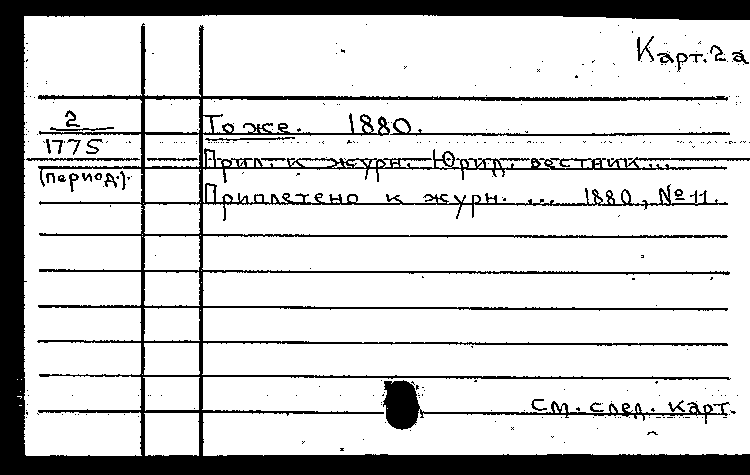 Карт. 2а
2
1775
(период.)
То же. 1880.
Прил. к журн. Юрид. вестник...
Приплетено к журн. ... 1880, № 11.
См. след. карт.